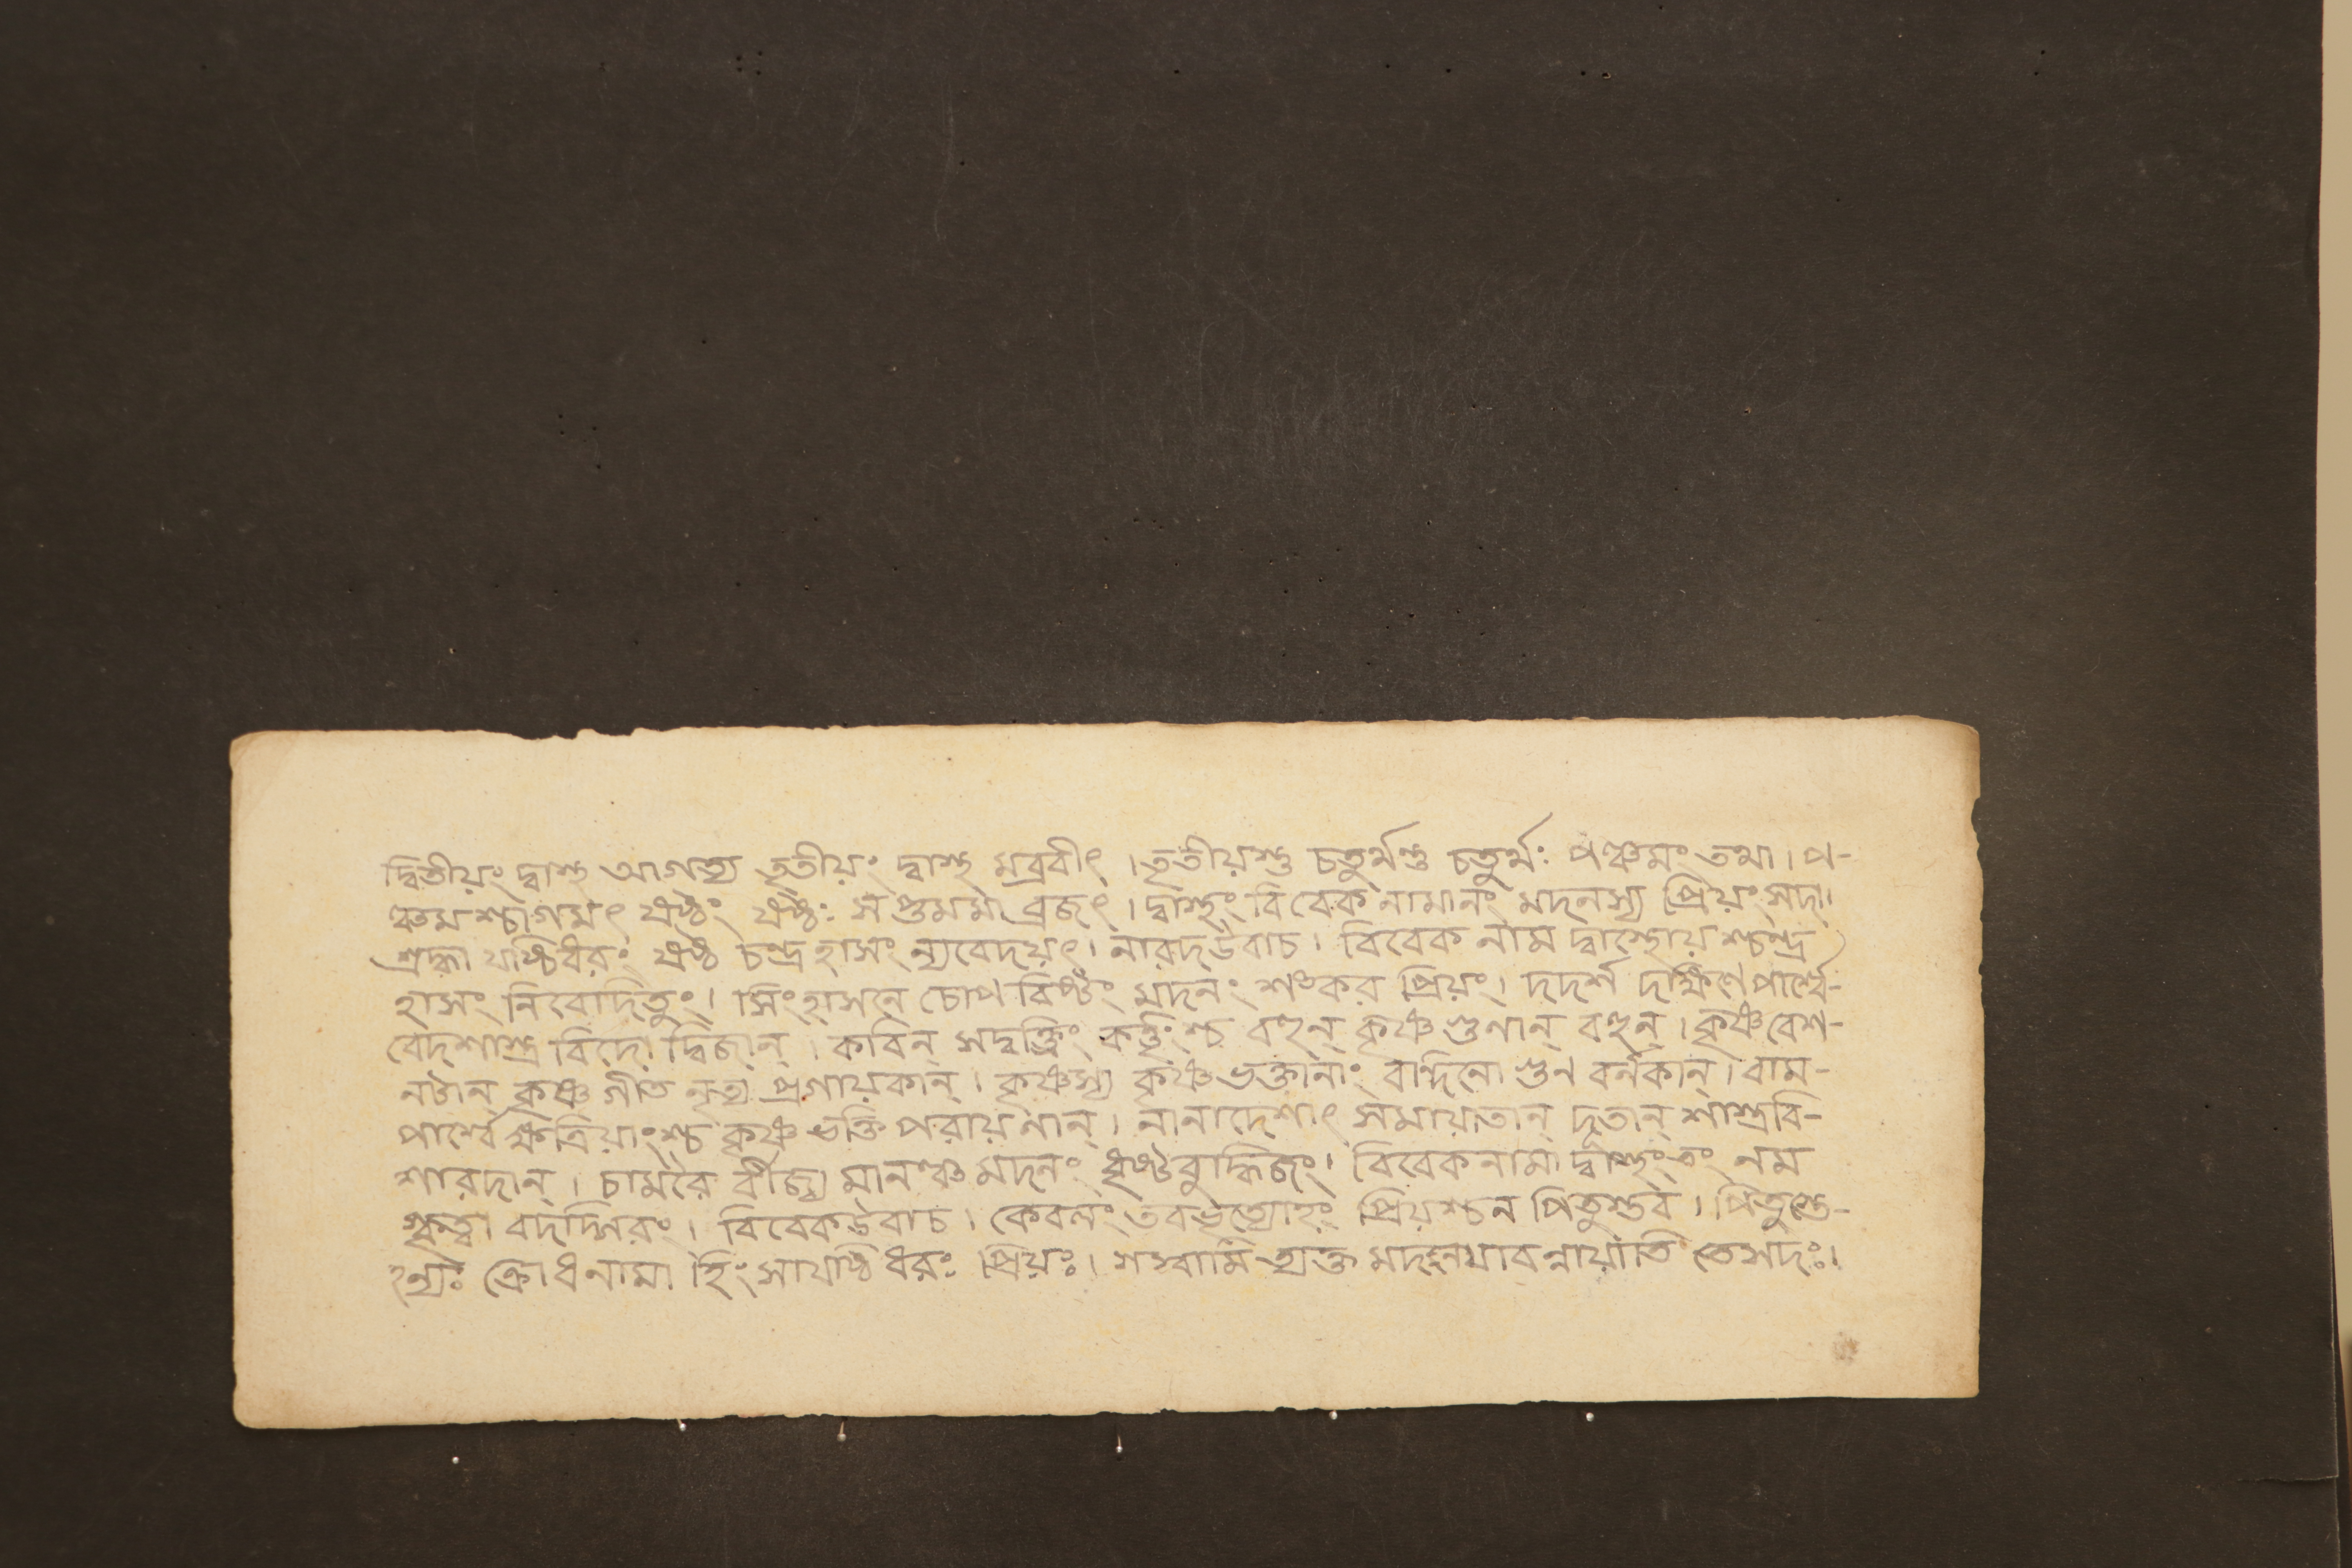 দ্বিতীয়ং দ্বাস্থ আগত্য তৃতীয়ং দ্বাস্থ মব্রবীৎ । তৃতীয়স্তু চতুর্থন্তু চতুর্থঃ পঞ্চমং তথা । প-
ঞ্চমশ্চাগমৎ ষষ্ঠং ষষ্ঠঃ সপ্তমমা ব্রজৎ । দ্বাস্থং বিবেক নামানং মদনস্য প্রিয়ং সদা ।
শ্রদ্ধা যষ্টিধরং ষষ্ঠ চন্দ্র হাসং ন্যবেদয়ৎ । নারদউবাচ । বিবেক নাম দ্বাস্থোয় শ্চন্দ্র
হাসং নিবেদিতুং । সিংহাসনে চোপ বিষ্টং মদনং শঙ্কর প্রিয়ং । দদর্শ দক্ষিণে পার্শ্বে-
বেদশাস্ত্র বিদো দ্বিজান্ । কবিন্ সদ্বক্তৃিং কর্তৃংশ্চ বহুন্ কৃষ্ণ গুনান্ বহুন্ । কৃষ্ণ বেশ-
নটান্ কৃষ্ণ গীত নৃত্য প্রগায়কান্ । কৃষ্ণস্য কৃষ্ণ ভক্তানাং বন্দিনো গুন বর্নকান্ । বাম-
পার্শ্বে ক্ষত্রিয়াংশ্চ কৃষ্ণ ভক্তি পরায়নান্ । নানাদেশাৎ সমায়াতান্ দূতান্ শাস্ত্রবি-
শারদান্ । চামরৈ র্বীজ্য মানঞ্চ মদনং ধৃষ্ট বুদ্ধিজং । বিবেকনামা দ্বাস্থং তং নম
স্কৃত্বা বদদ্গিরং । বিবেকউবাচ । কেবলং তব ভৃত্যোহং প্রিয়শ্চন পিতুস্তব । পিতুস্তে-
হন্যঃ ক্রোধনামা হিংসাযষ্টি ধরঃ প্রিয়ঃ । মদন যাবন্নায়াতি তে সদঃ ।